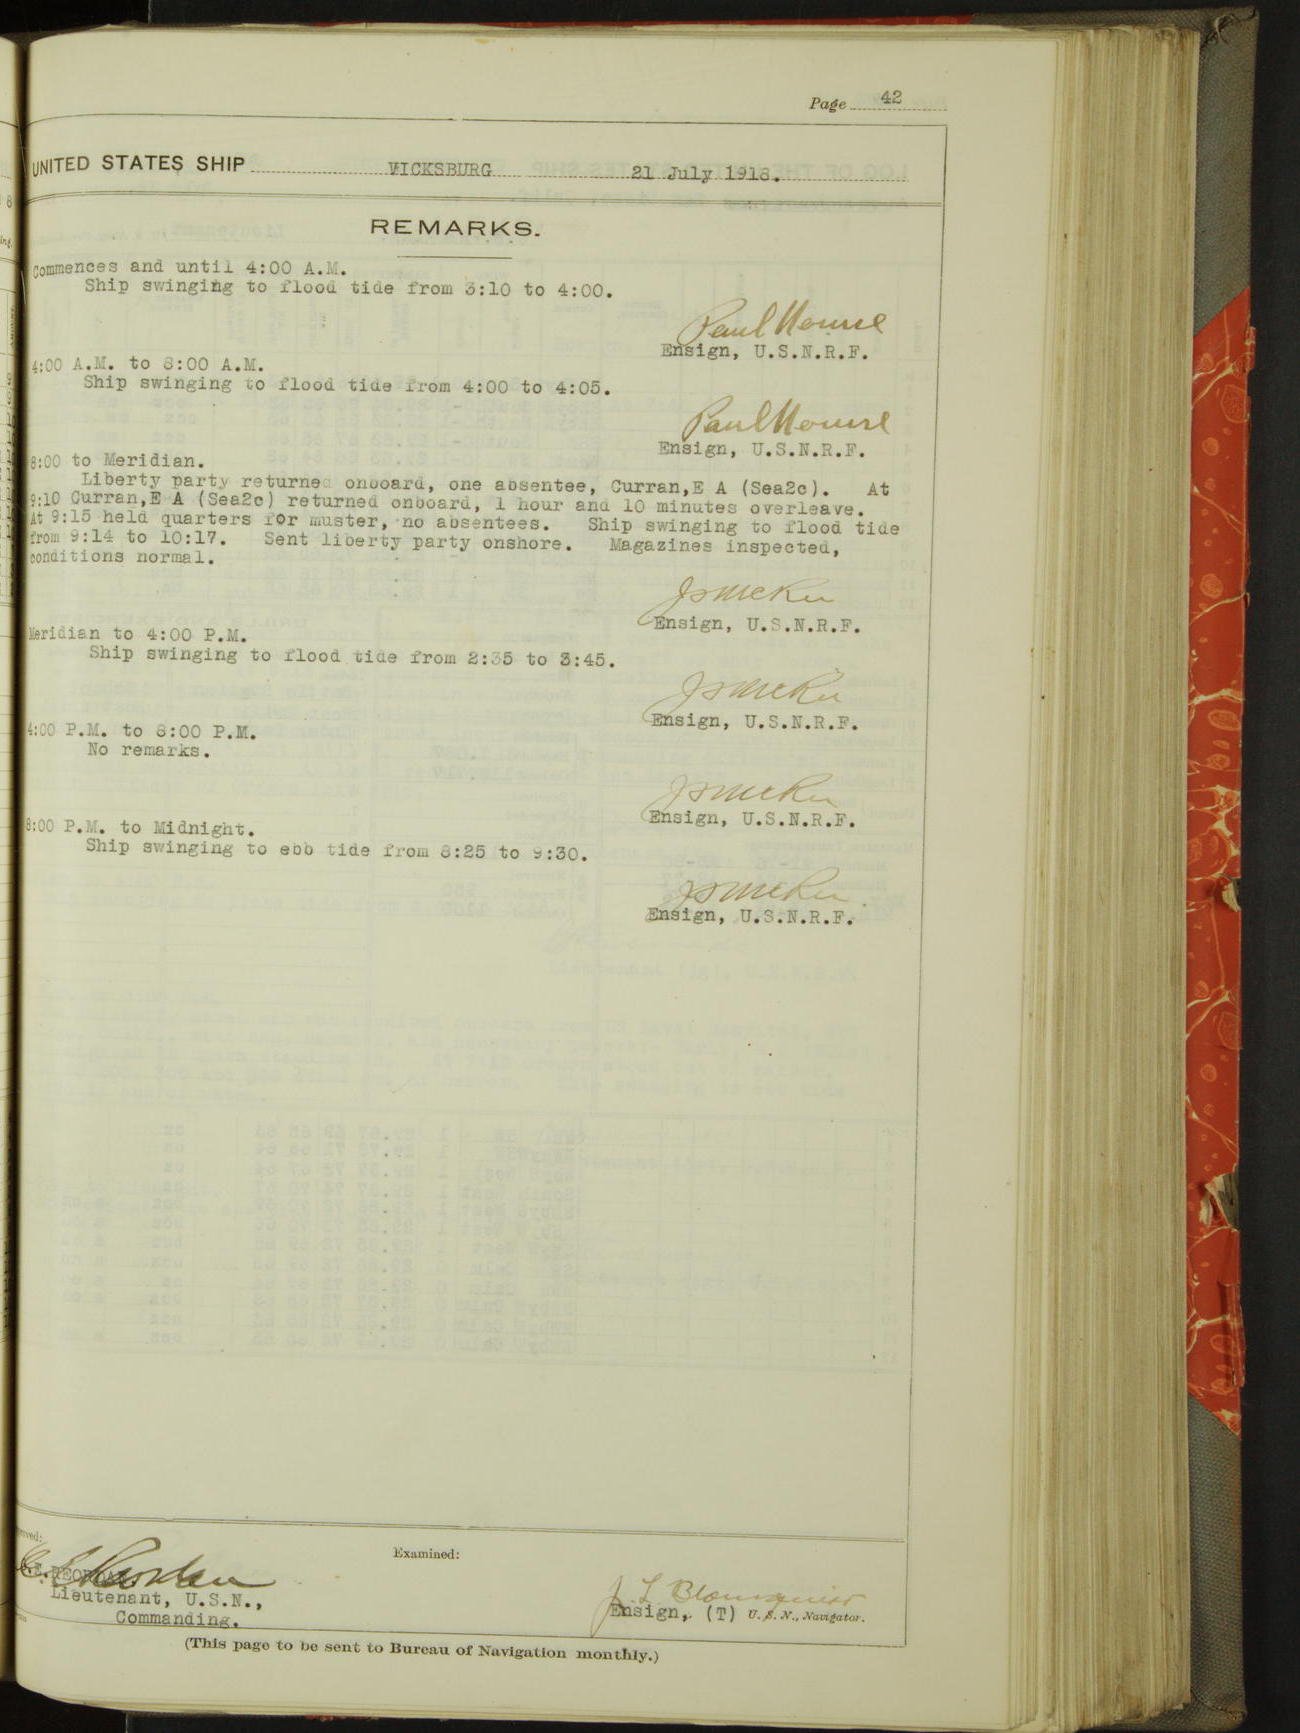 Page 42
UNITED STATES SHIP VICKSBURG 21 July 1918.
REMARKS.
Commences and until 4:00 A.M.
Ship swinging to flood tide from 3:10 to 4:00.
Paul
Ensign, U.S.N.R.F.
4:00 A.M. to 8:00 A.M.
Ship swinging to flood tide from 4:00 to 4:05.
Paul
Ensign, U.S.N.R.F.
8:00 to Meridian.
Liberty party returned onboard, one absentee, Curran,E A (Sea2c). At
9:10 Curran,E A (Sea2c) returned onboard, 1 hour and 10 minutes overleave.
At 9:15 held quarters for muster, no absentees. Ship swinging to flood tide
from 9:14 to 10:17. Sent liberty party onshore. Magazines inspected,
conditions normal.
Ensign, U.S.N.R.F.
Meridian to 4:00 P.M.
Ship swinging to flood tide from 2:35 to 3:45.
Ensign, U.S.N.R.F.
4:00 P.M. to 8:00 P.M.
No remarks.
Ensign, U.S.N.R.F.
8:00 P.M. to Midnight.
Ship swinging to ebb tide from 8:25 to 9:30.
Ensign, U.S.N.R.F.
Examined:
Lieutenant, U.S.N.,
Commanding.
J. L.
Ensign, (T) U. S. N., Navigator.
(This page to be sent to Bureau of Navigation monthly.)